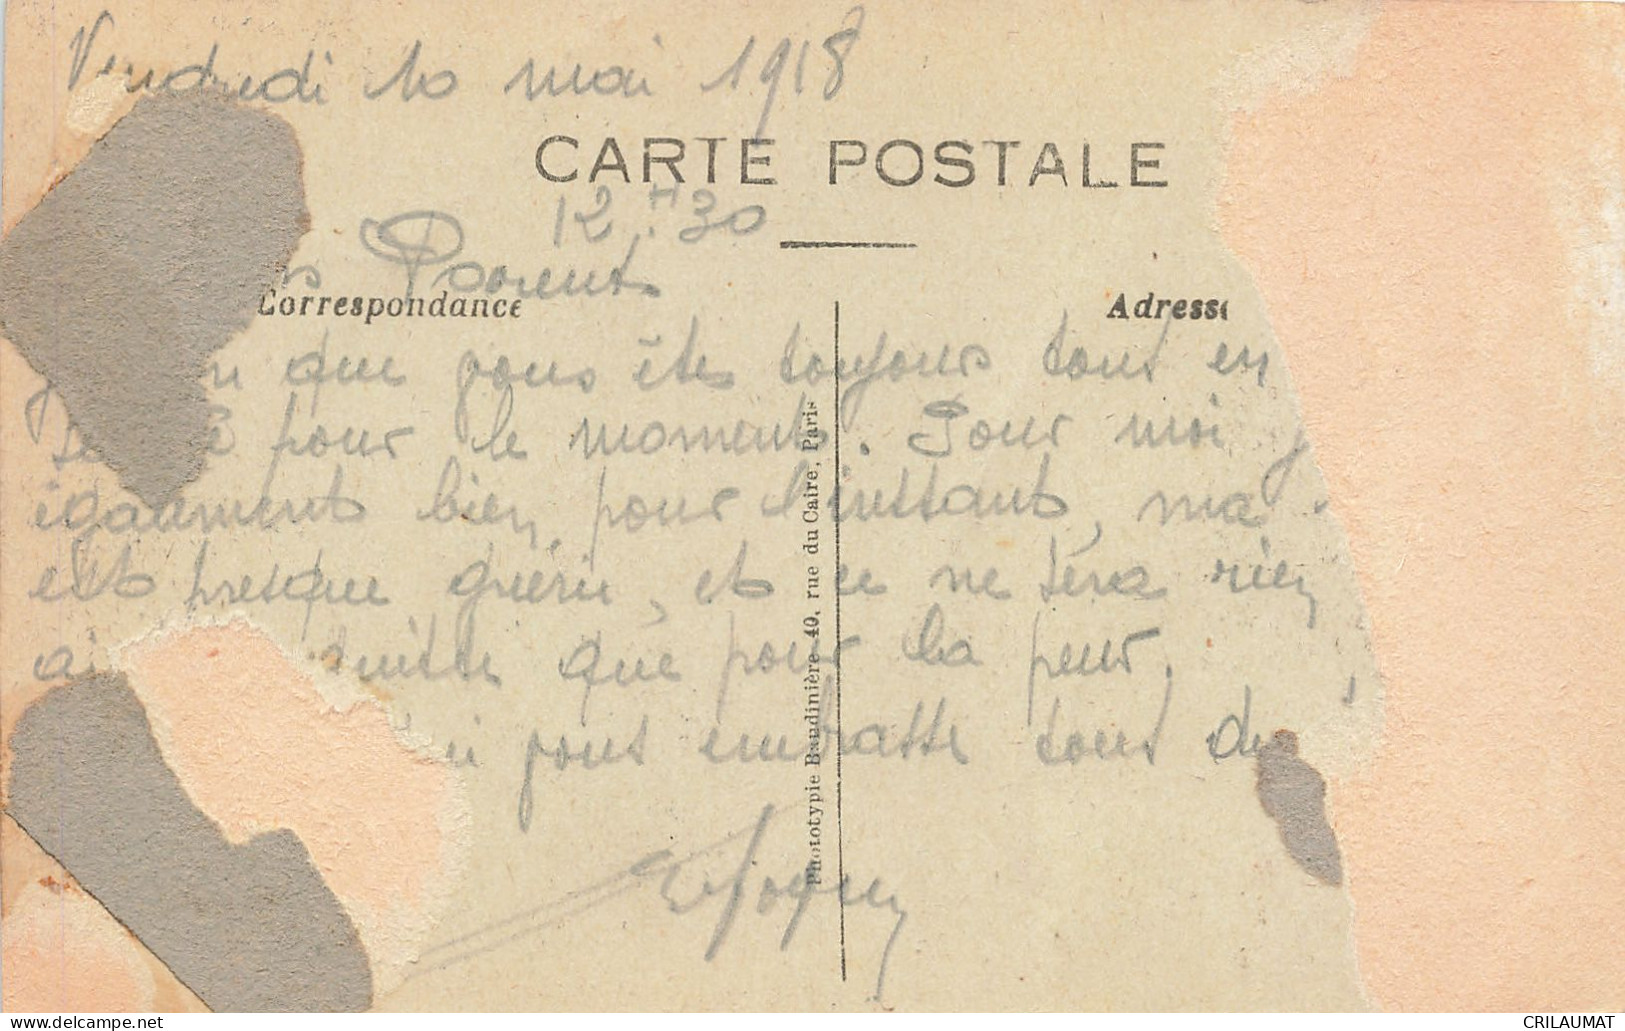 Vendredi 10 mai 1918
CARTE POSTALE
12H30
Parents
Correspondance
Adresse
que vous êtes toujours tous en
pour le moment. Pour moi j
égaument bien pour l'instant, ma
est presque guérie, et ce ne sera rien
ai suitte que pour la peur.
vous embrasse tous du
Phototypie Baudinière 40, rue du Caire, Paris
CRILAUMAT